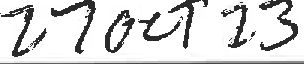 27 OCT 23